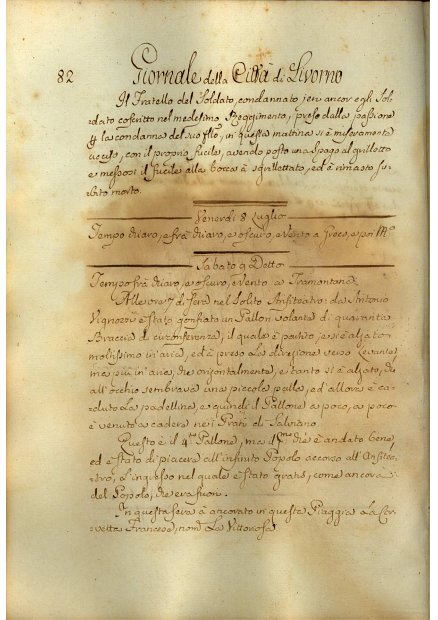 82
Giornale della Città di Livorno
Il Fratello del Soldato, condannato jeri ancor egli Sol-
dato coscritto nel medesimo Reggimento, preso dalla passione
la condanna del suo in questa mattina si è miseramente
ucciso, con il proprio fucile, avendo posto uno spago al grilletto
e messosi il fucile alla bocca à sgrillettato, ed è rimasto su-
bito morto.
Venerdì 8 Luglio
Tempo chiaro, e frà chiaro, e oscuro, e Vento a Greco, e poi
Sabato 9 Detto
Tempo frà chiaro, e oscuro, e Vento a Tramontana
Alle ore 7 di Sera nel Solito Anfiteatro: da Antonio
è stato gonfiato un Pallon Volante di quaranta
Braccia di circonferenza, il quale è partito, e si è alzato
moltissimo in aria, ed à preso la direzione verso Levante
ma più in aria, che orizontalmente, e tanto si è alzato, che
all'occhio sembrava una piccola palla, ed allora è ca-
duto la padellina, e quindi il Pallone a poco, a poco
è venuto a cadere nei Prati di Salviano.
Questo è il 4.to Pallone, ma il che è andato bene,
ed è stato di piacere all'infinito Popolo accorso all'Anfitea-
tro, l'ingresso nel quale è stato gratis, come ancora
del Popolo, che era fuori.
In questa sera à ancorato in questa Piaggia la Cor-
vetta Francese, nom.ta La Vittoriosa